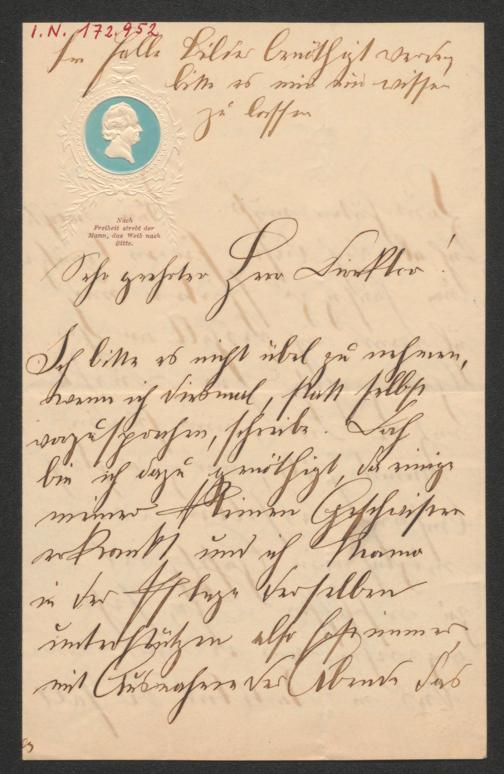 I.N. 172.952
Im Falle Bilder benöthigt werden
bitte es mir wissen
zu lassen
Nach
Freiheit strebt der
Mann, das Weib nach
Sitte.
Sehr geehrter Herr Direktor!
Ich bitte es nicht übel zu nehmen,
wenn ich diesmal, statt selbst
vorzusprechen, schreibe. Doch
bin ich dazu genöthigt, da einige
meiner kleinen Geschwister
erkrankt und ich Mama
in der Pflege derselben
unterstützen also fast immer
mit Ausnahme der Abende das